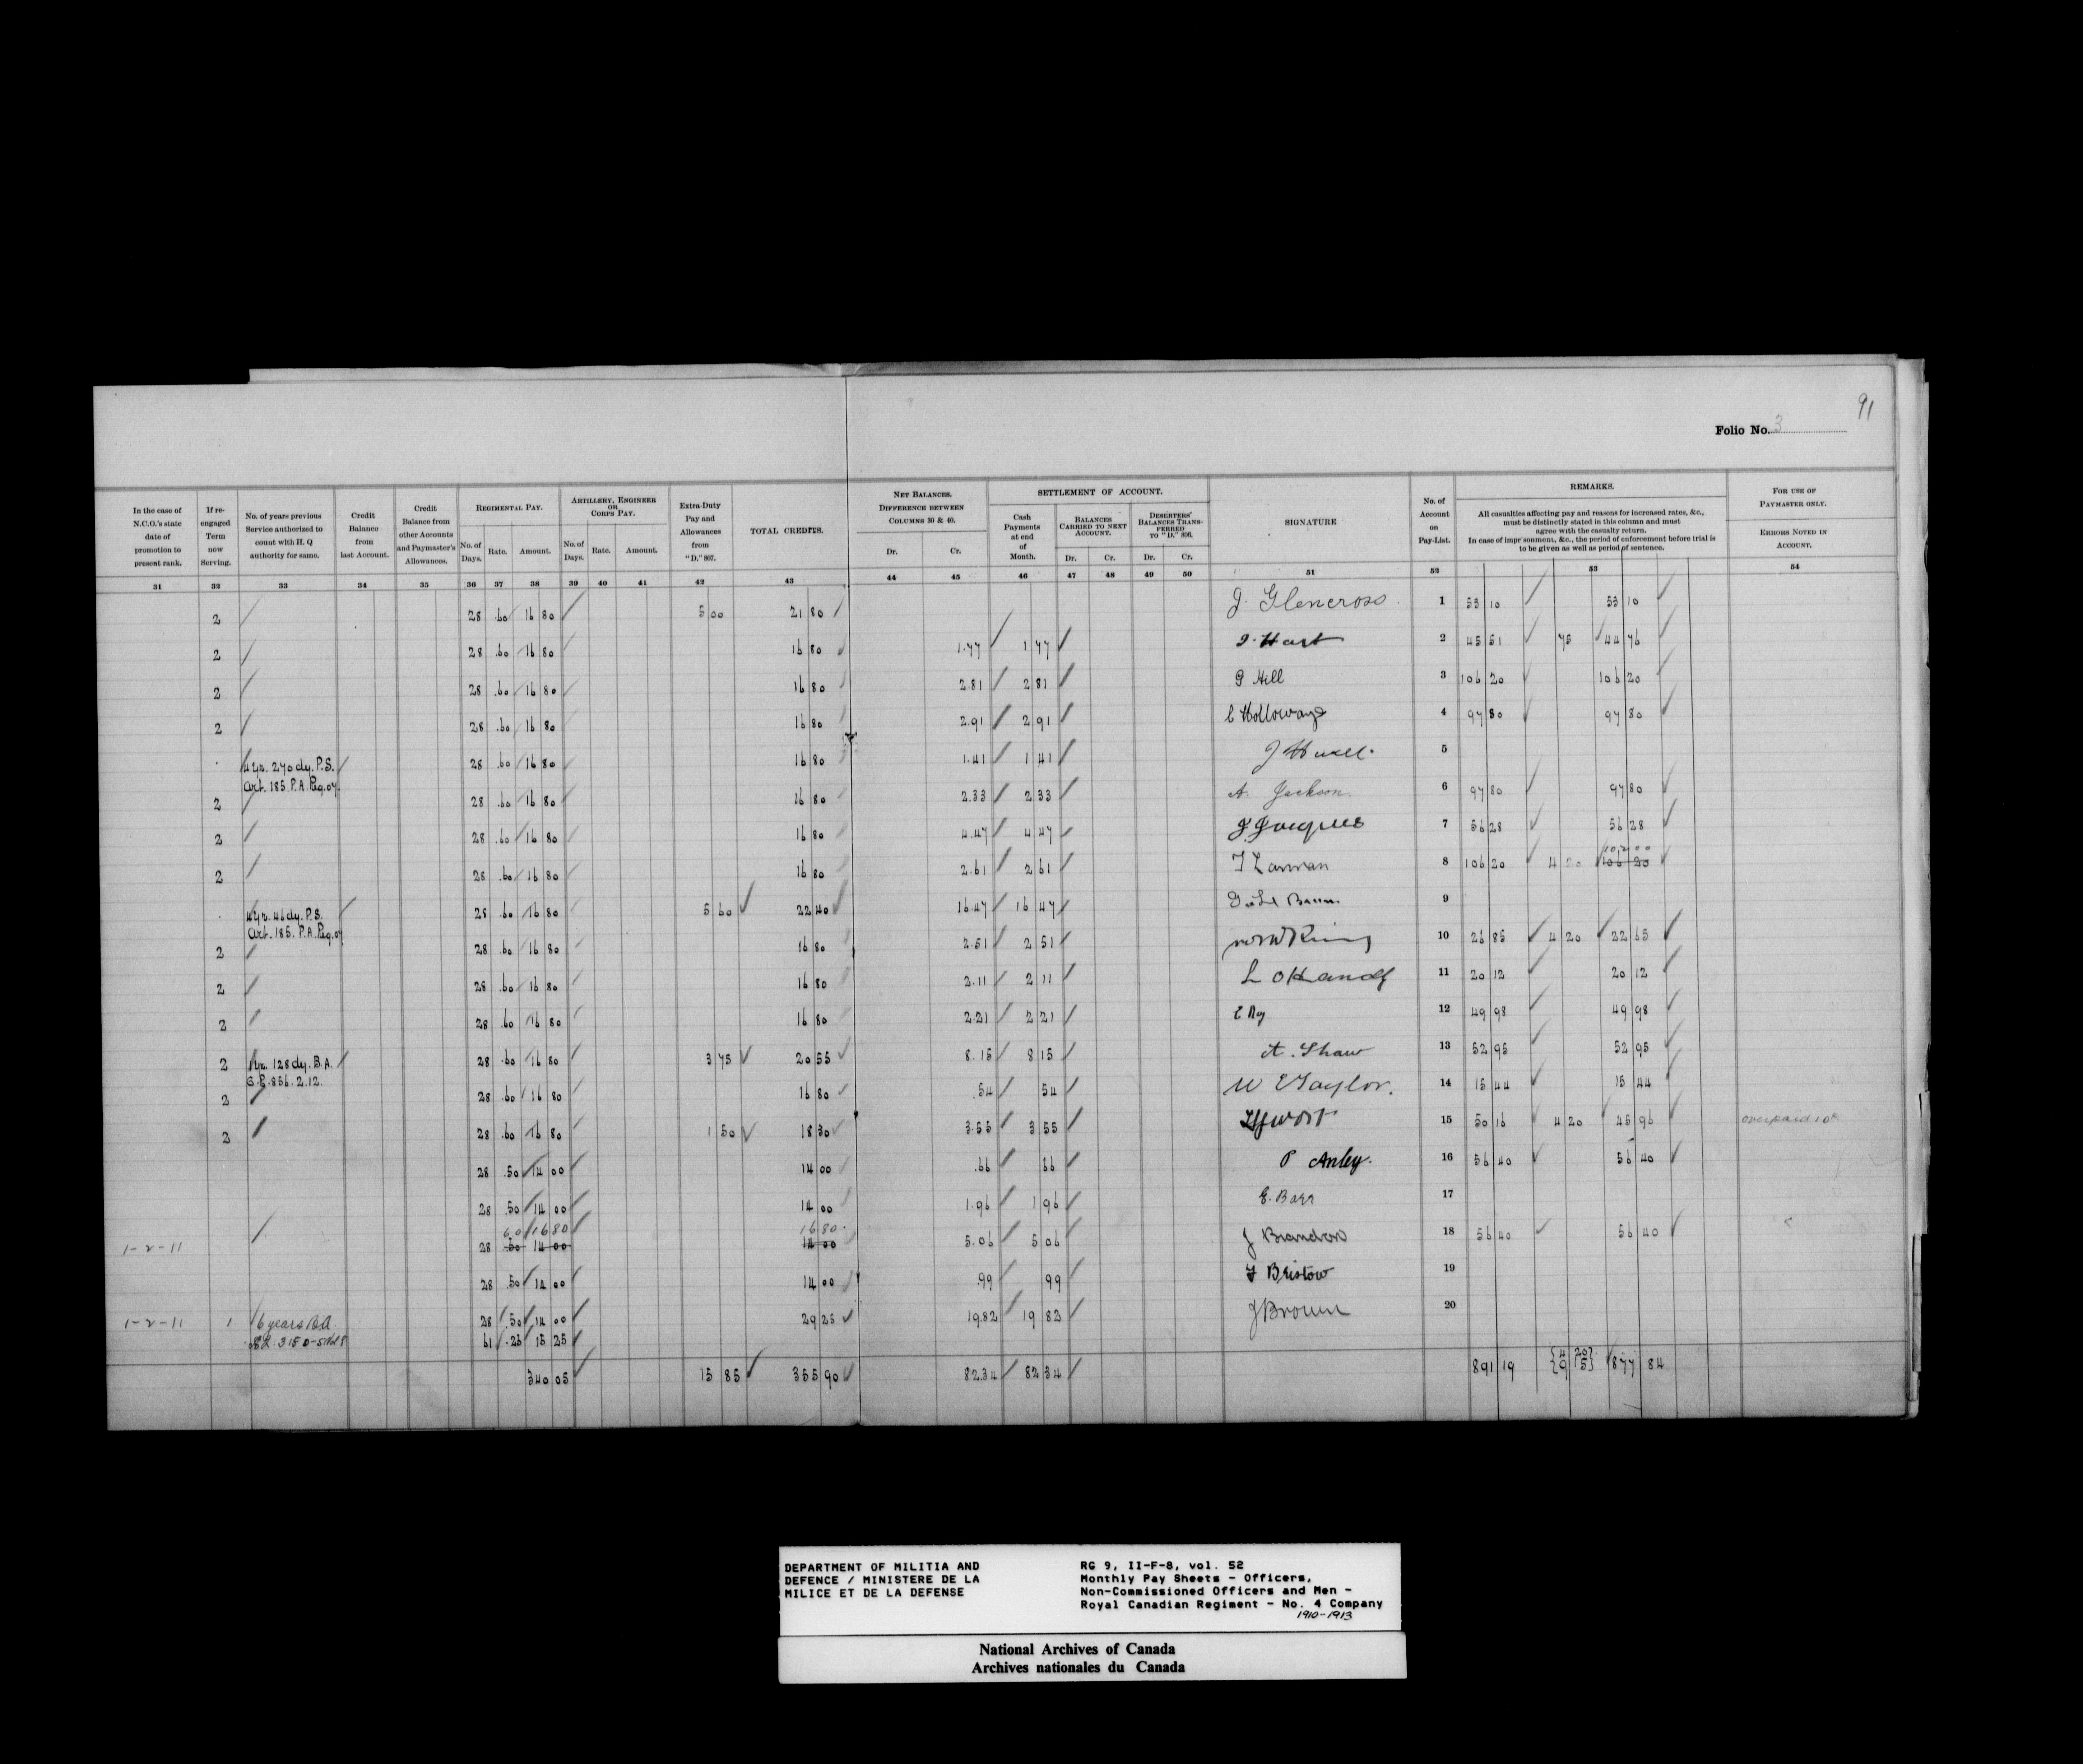 91
Folio No. 3
In the case of N.C.O.'s state date of promotion to present rank.
If re-engaged Term now Serving.
No. of years previous Service authorized to count with H. Q authority for same.
Credit Balance from last Account.
Credit Balance from other Accounts and Paymaster's Allowances.
REGIMENTAL PAY.
No. of Days.
Rate.
Amount.
ARTILLERY, ENGINEER OR CORPS PAY.
No. of Days.
Rate.
Amount.
Extra-Duty Pay and Allowances from "D." 807.
TOTAL CREDITS.
NET BALANCES. DIFFERENCE BETWEEN COLUMNS 30 & 40.
Dr.
Cr.
SETTLEMENT OF ACCOUNT.
Cash Payments at end of Month.
BALANCES CARRIED TO NEXT ACCOUNT.
Dr.
Cr.
DESERTERS' BALANCES TRANSFERRED TO "D." 806.
Dr.
Cr.
SIGNATURE
No. of Account on Pay-List.
REMARKS.
All casualties affecting pay and reasons for increased rates, &c., must be distinctly stated in this column and must agree with the casualty return.
In case of imprisonment, &c., the period of enforcement before trial is to be given as well as period of sentence.
FOR USE OF PAYMASTER ONLY.
ERRORS NOTED IN ACCOUNT.
31 32 33 34 35 36 37 38 39 40 41 42 43 44 45 46 47 48 49 50 51 52 53 54
2 28 .60 16 80 5 00 21 80 J. Glencross 1 53 10 53 10
2 28 .60 16 80 16 80 1.77 1 77 J. Hart 2 45 51 75 44 76
2 28 .60 16 80 16 80 2.81 2 81 P Hill 3 106 20 106 20
2 28 .60 16 80 16 80 2.91 2 91 C Holloway 4 97 80 97 80
4 yr. 270 dy. P.S. 28 .60 16 80 16 80 1.41 1 41 J 5
Art. 185. P.A. Reg. 07
2 28 .60 16 80 16 80 2.33 2 33 A. Jackson 6 97 80 97 80
2 28 .60 16 80 16 80 4.47 4 47 J. Jacques 7 56 28 56 28
2 28 .60 16 80 16 80 2.61 2 61 T Lanman 8 106 20 4 20 102 00 106 20
4 yr. 46 dy. P.S. 28 .60 16 80 5 60 22 40 16.47 16 47 9
Art. 185. P.A. Reg. 07
2 28 .60 16 80 16 80 2.51 2 51 10 26 85 4 20 22 65
2 28 .60 16 80 16 80 2.11 2 11 L 11 20 12 20 12
2 28 .60 16 80 16 80 2.21 2 21 12 49 98 49 98
2 1 yr. 128 dy. B.A. 28 .60 16 80 3 75 20 55 8.15 8 15 A. Shaw 13 52 95 52 95
S.R. 856. 2.12.
2 28 .60 16 80 16 80 .54 54 W E Taylor. 14 15 44 15 44
2 28 .60 16 80 1 50 18 30 3.55 3 55 15 50 16 4 20 45 96 overpaid 10¢
28 .50 14 00 14 00 .66 66 P Anley. 16 56 40 56 40
28 .50 14 00 14 00 1.96 1 96 E. Barr 17
60 16 80 16 80
1-2-11 28 .50 14 00 14 00 5.06 5 06 J Brandon 18 56 40 56 40
28 .50 14 00 14 00 .99 99 F Bristow 19
1-2-11 1 6 years B.A. 28 .50 14 00 29 25 19.82 19 82 J Brown 20
61 .25 15 25
340 05 15 85 355 90 82.34 82 34 891 19 4 20 9 15 877 84
DEPARTMENT OF MILITIA AND
DEFENCE / MINISTERE DE LA
MILICE ET DE LA DEFENSE
RG 9, II-F-8, vol. 52
Monthly Pay Sheets - Officers,
Non-Commissioned Officers and Men -
Royal Canadian Regiment - No. 4 Company
1910-1913
National Archives of Canada
Archives nationales du Canada